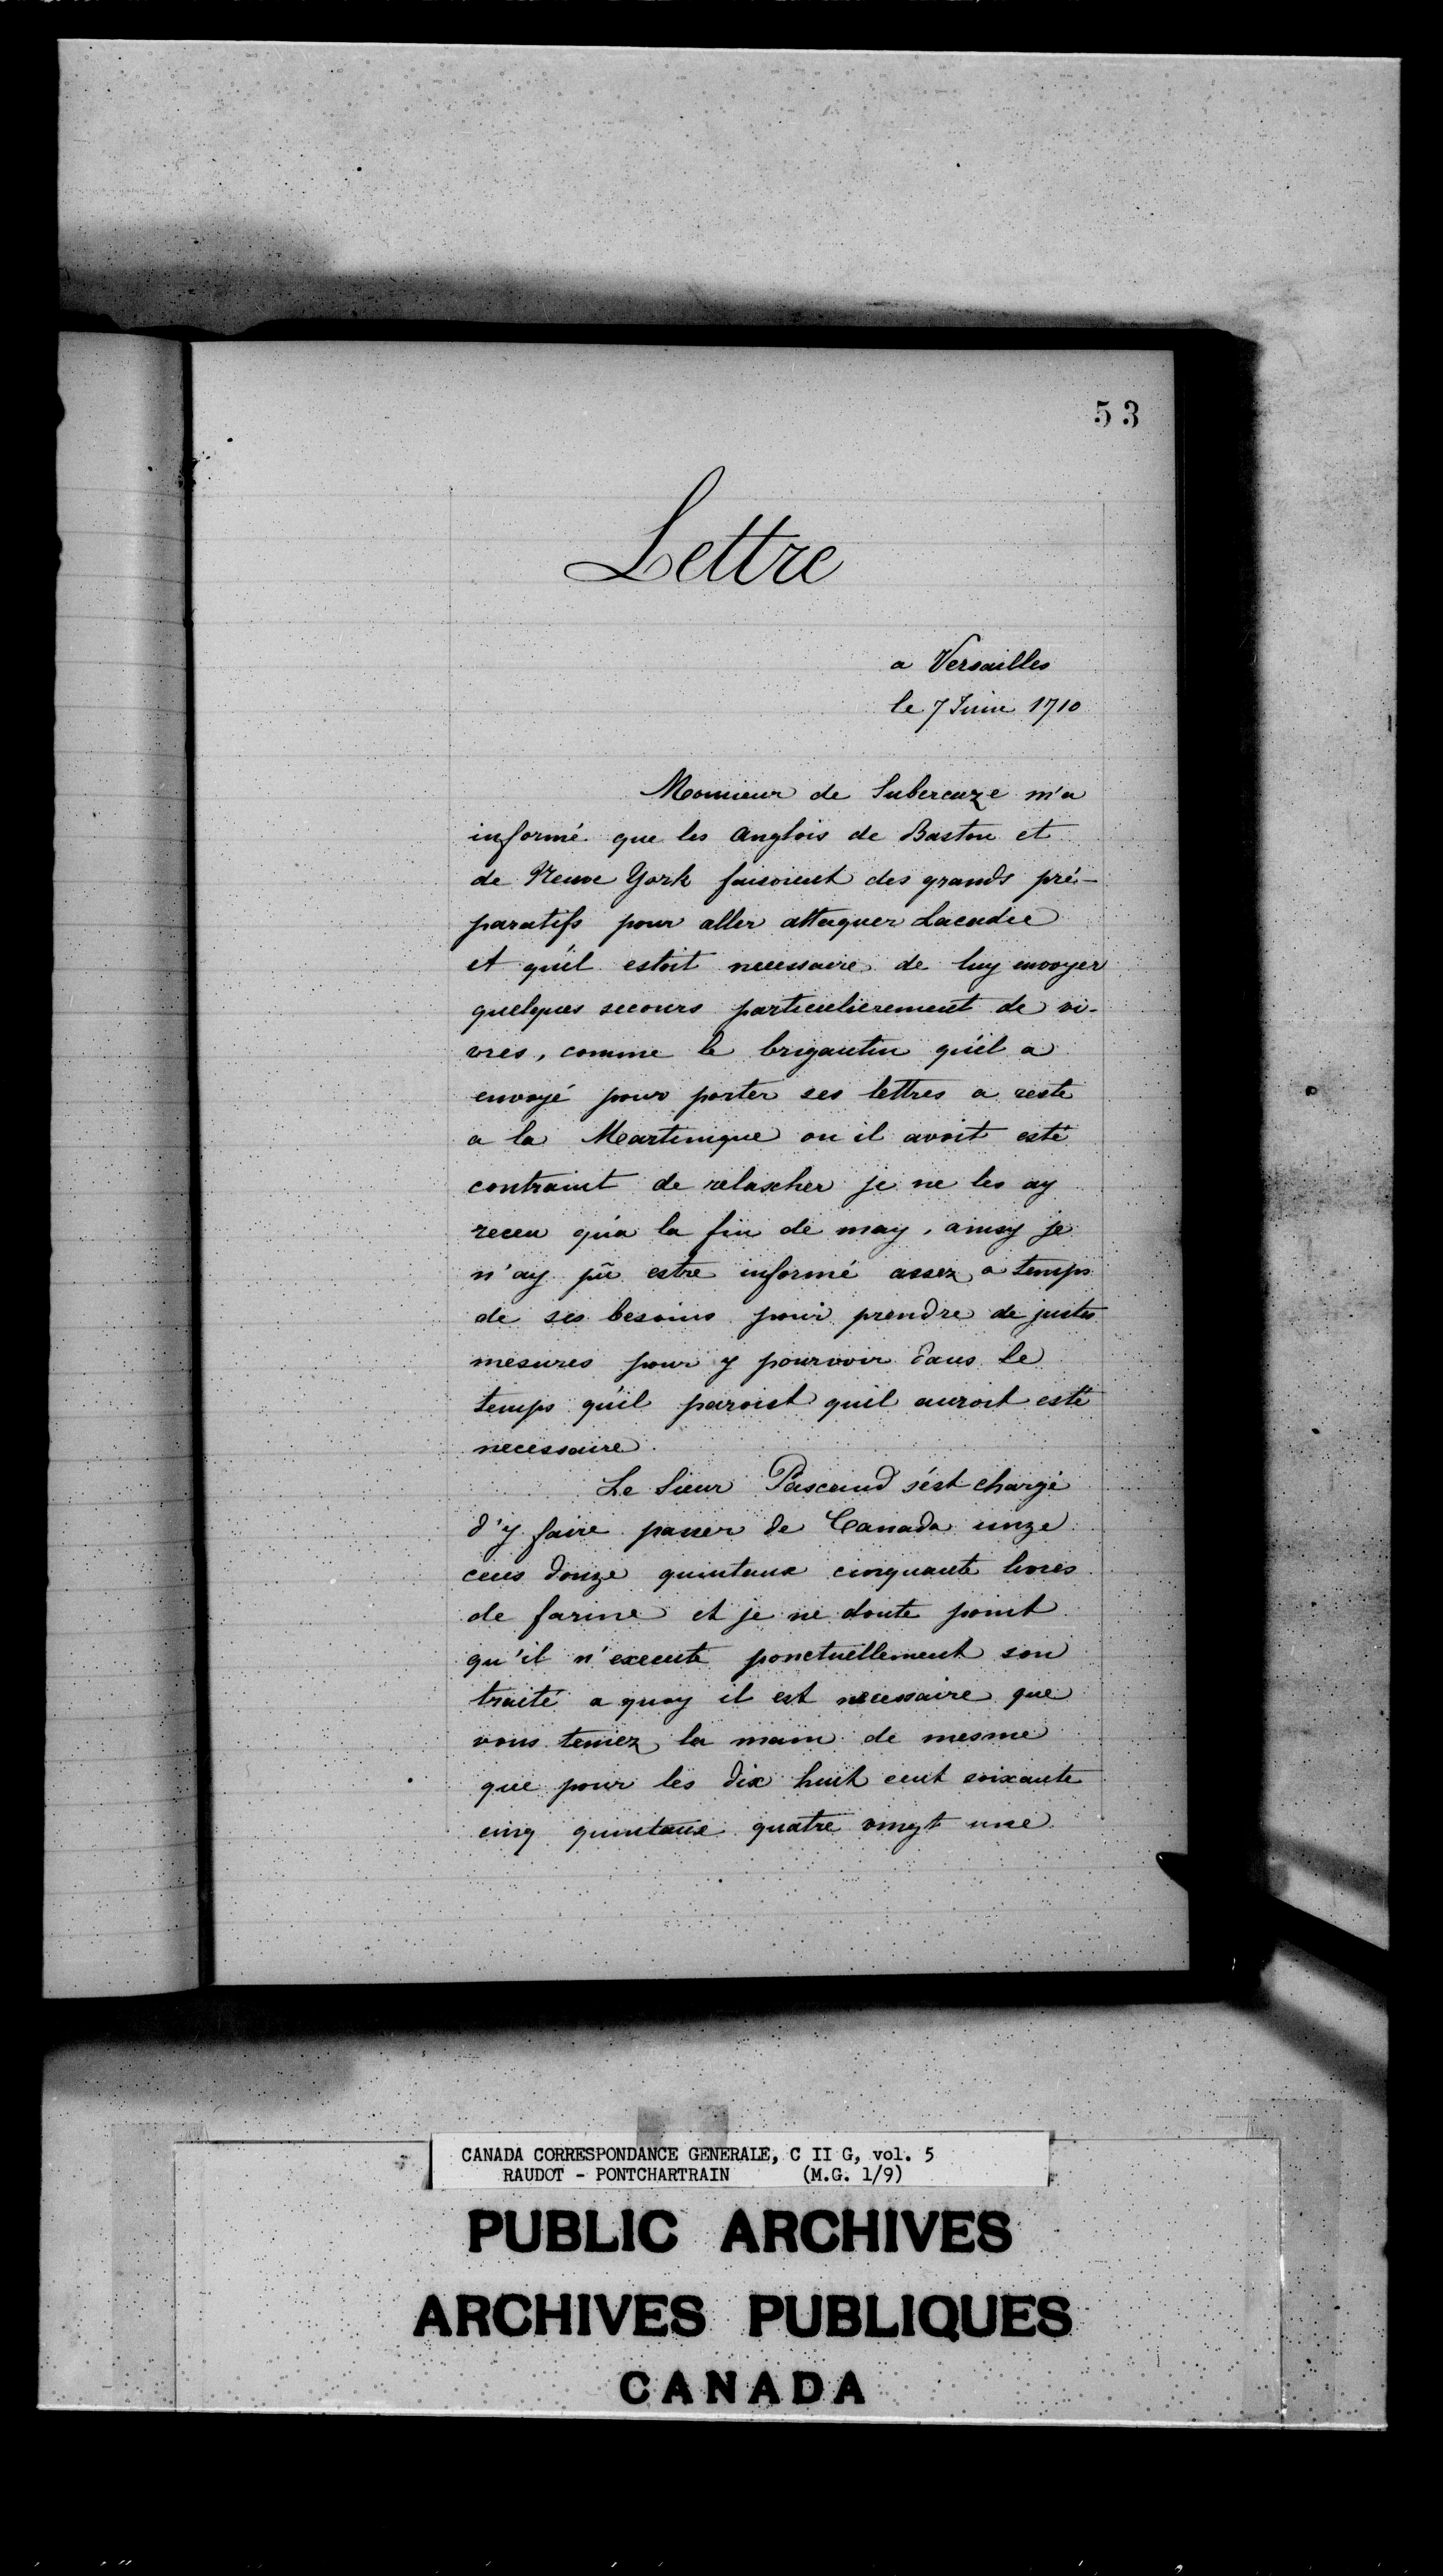 53
Lettre
a Versailles
le 7 Juin 1710
Monsieur de Subercaze m'a
informé que les anglois de Baston et
de Neuve York faisoient des grands pré-
paratifs pour aller attaquer Lacadie
et qu'il estoit necessaire de luy envoyer
quelques secours particulierement de vi-
vres, comme le brigantin qu'il a
envoyé pour porter ses lettres a resté
a la Martinique ou il avoit esté
contraint de relascher je ne les ay
receu qu'a la fin de may, ainsy je
n'ay pû estre informé assez a temps
de ses besoins pour prendre de justes
mesures pour y pourvoir dans le
temps qu'il paroist quil auroit esté
necessaire.
Le Sieur Pascaud s'est chargé
d'y faire passer de Canada unze
cens douze quintaux cinquante livres
de farine et je ne doute point
qu'il n'execute ponctuellement son
traité a quoy il est necessaire que
vous teniez la main de mesme
que pour les dix huit cent soixante
cinq quintaux quatre vingt une
CANADA CORRESPONDANCE GENERALE, C II G, vol. 5
RAUDOT - PONTCHARTRAIN (M.G. 1/9)
PUBLIC ARCHIVES
ARCHIVES PUBLIQUES
CANADA